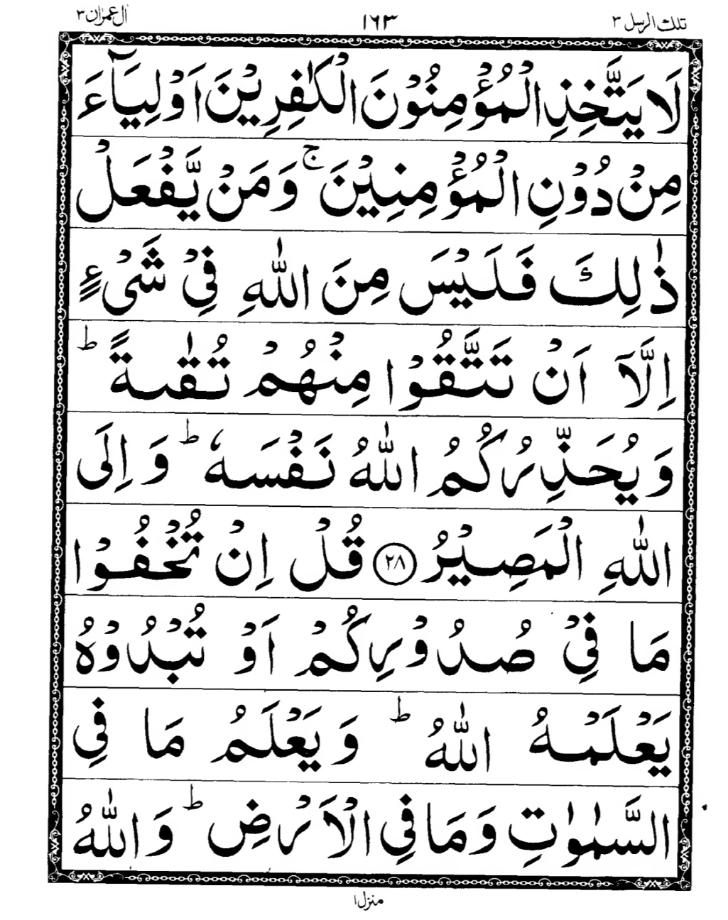 تلك الرسل ٣ ١٦٣ اٰل عمرٰن ٣
لَا يَتَّخِذِ الْمُؤْمِنُوْنَ الْكٰفِرِيْنَ اَوْلِيَآءَ
مِنْ دُوْنِ الْمُؤْمِنِيْنَ ۚ وَمَنْ يَّفْعَلْ
ذٰلِكَ فَلَيْسَ مِنَ اللّٰهِ فِيْ شَيْءٍ
اِلَّاۤ اَنْ تَتَّقُوْا مِنْهُمْ تُقٰىةً ؕ
وَيُحَذِّرُكُمُ اللّٰهُ نَفْسَهٗ ؕ وَاِلَى
اللّٰهِ الْمَصِيْرُ ﴿٢٨﴾ قُلْ اِنْ تُخْفُوْا
مَا فِيْ صُدُوْرِكُمْ اَوْ تُبْدُوْهُ
يَعْلَمْهُ اللّٰهُ ؕ وَيَعْلَمُ مَا فِي
السَّمٰوٰتِ وَمَا فِي الْاَرْضِ ؕ وَاللّٰهُ
منزل ١